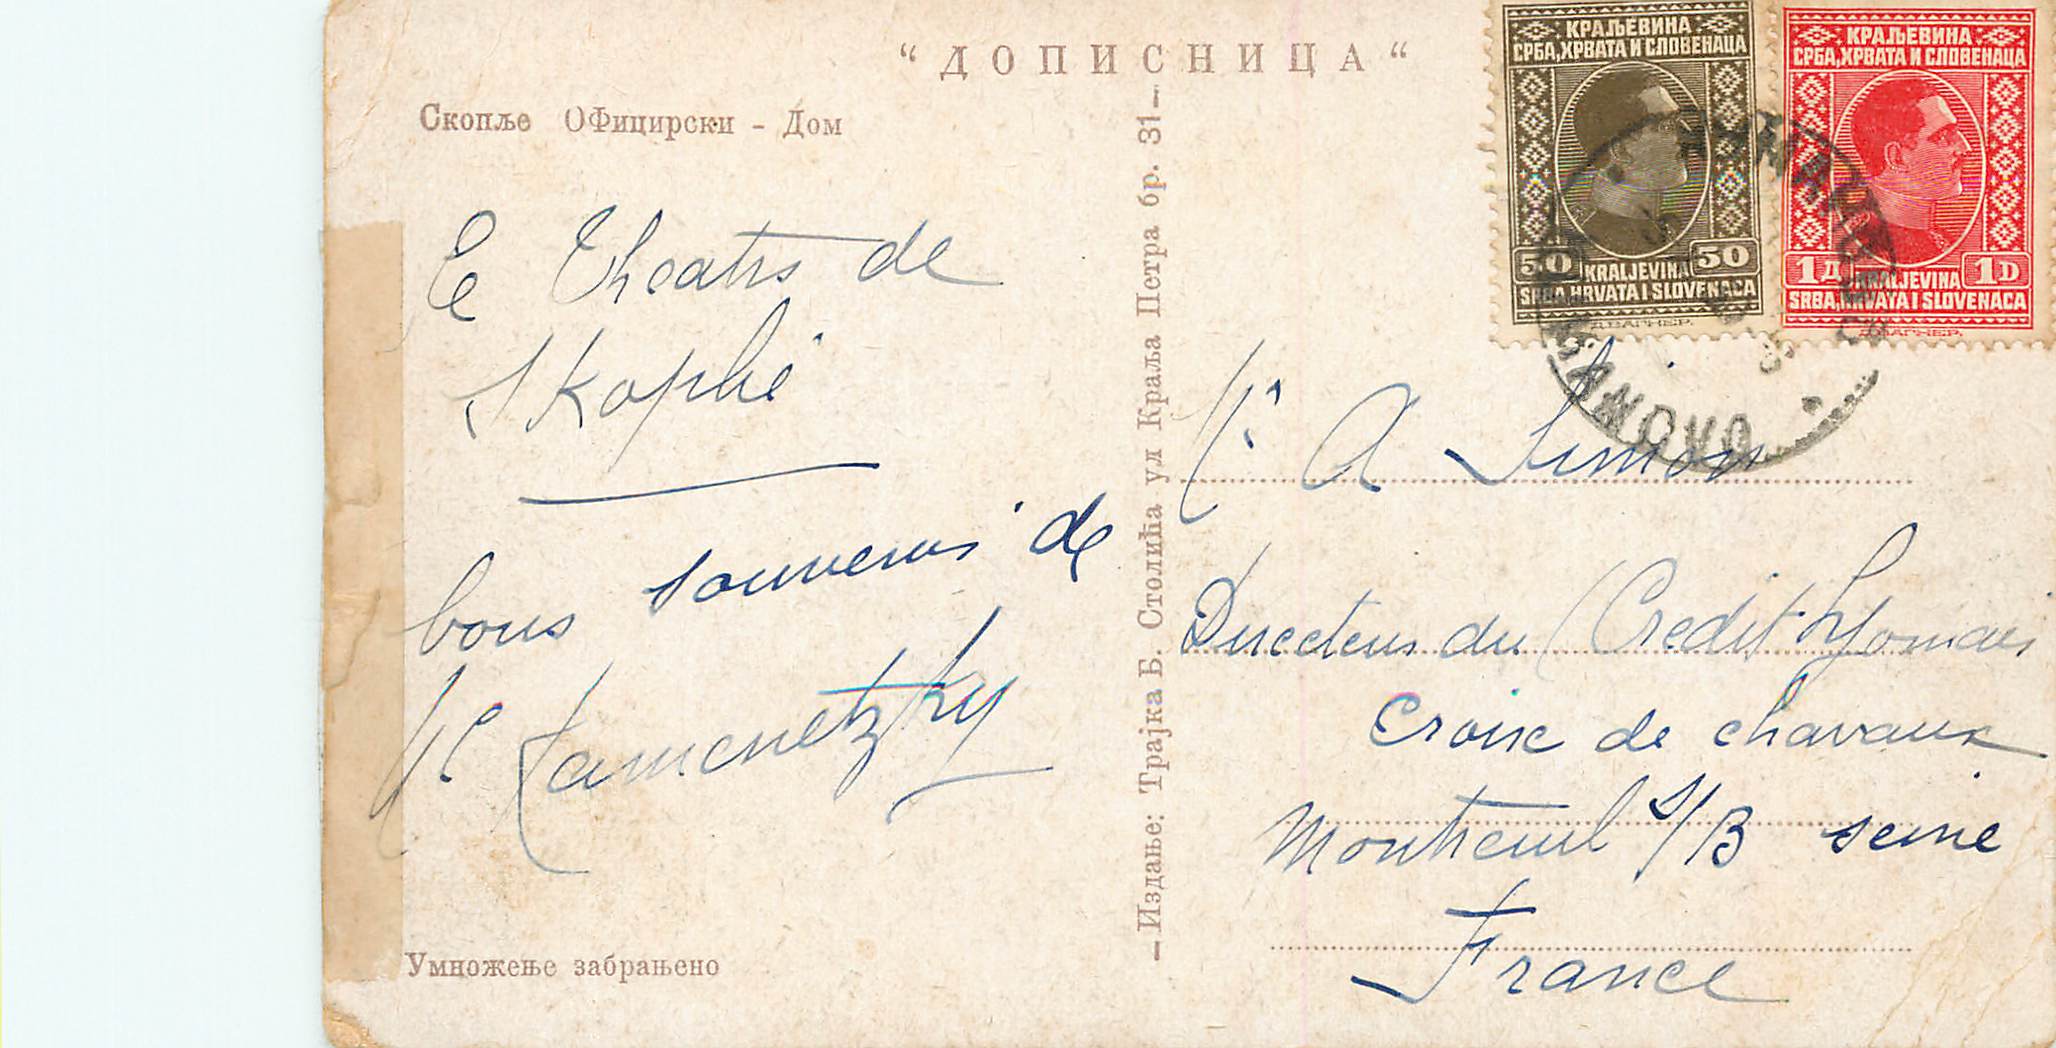 “ДОПИСНИЦА“
Скопље ОФицирски - Дом
Le Theatre de
Skoplié
bons souvenirs de
Kamenetzky
Умножење забрањено
—Издање: Трајка Б. Столића ул Краља Петра бр. 31—
КРАЉЕВИНА
СРБА, ХРВАТА И СЛОВЕНАЦА
50 50
KRALJEVINA
SRBA, HRVATA I SLOVENACA
Д.ВАГНЕР.
КРАЉЕВИНА
СРБА, ХРВАТА И СЛОВЕНАЦА
1Д 1D
KRALJEVINA
SRBA, HRVATA I SLOVENACA
Д.ВАГНЕР.
КУМАНОВО
KUMANOVO
Mr A Simon
Directeur du Credit Lyonnais
Croix de chavaux
Montreuil s/B seine
France